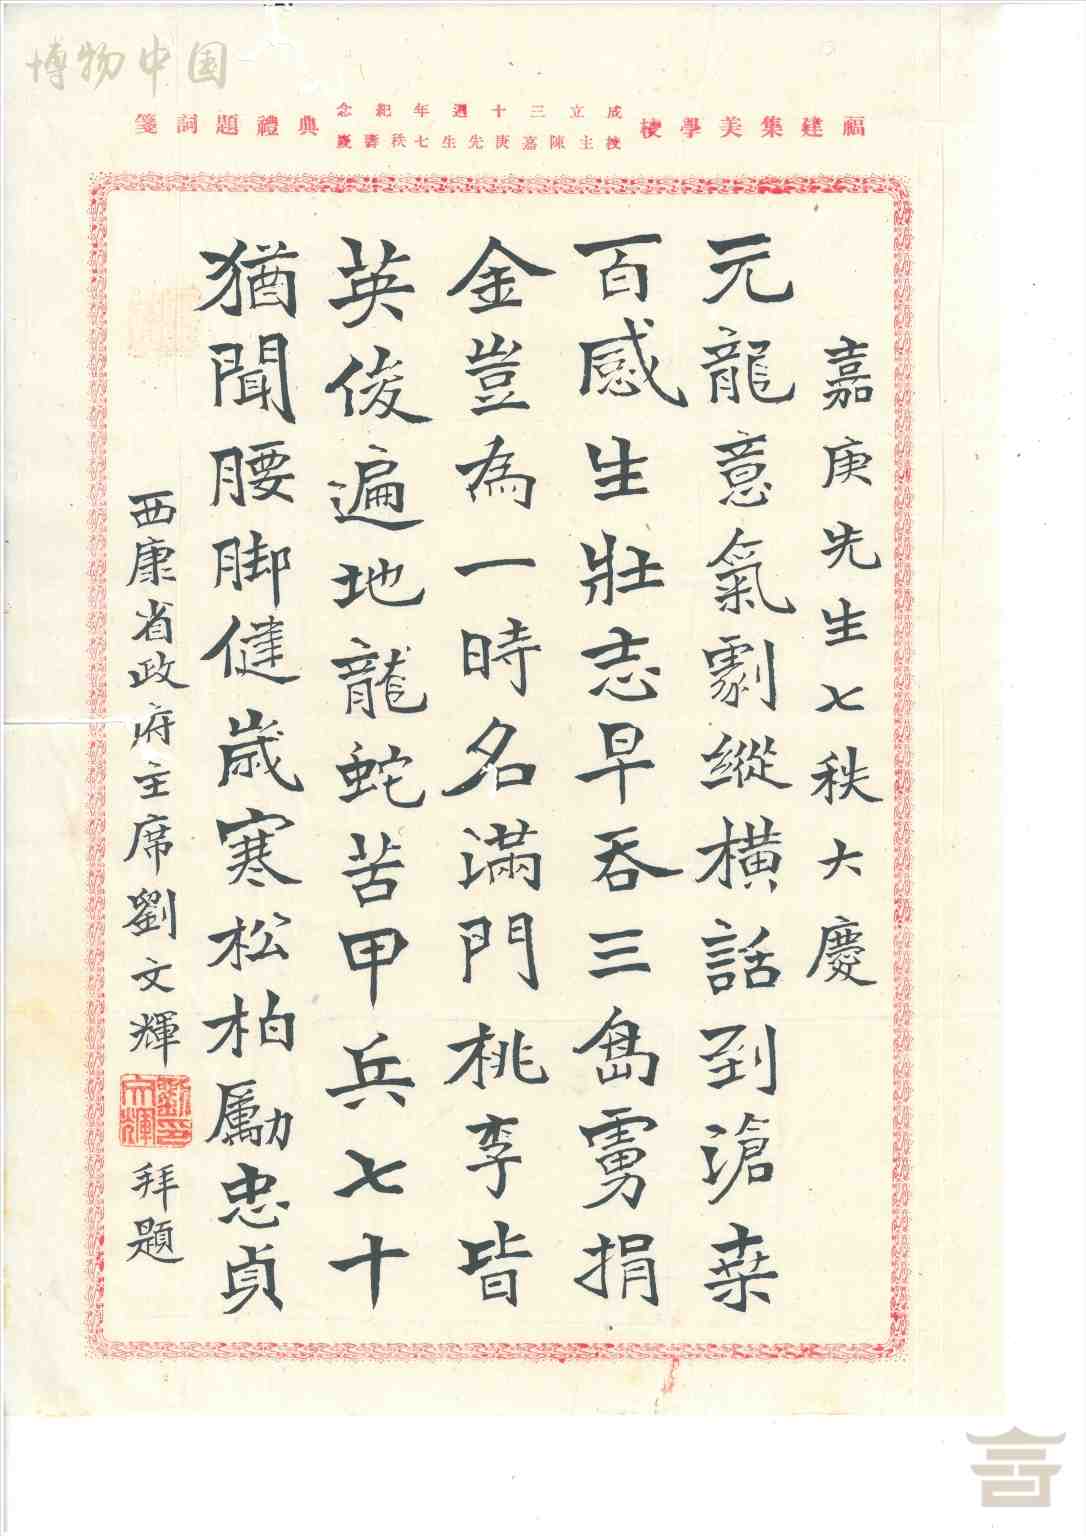 博物中国
福建集美學校
成立三十週年紀念
校主陳嘉庚先生七秩壽慶
典禮題詞箋
嘉庚先生七秩大慶
元龍意氣劇縱橫話到滄桒
百感生壯志早吞三島虜捐
金豈為一時名滿門桃李皆
英俊遍地龍蛇苦甲兵七十
猶聞腰脚健歲寒松柏勵忠貞
西康省政府主席劉文輝拜題
劉文輝印